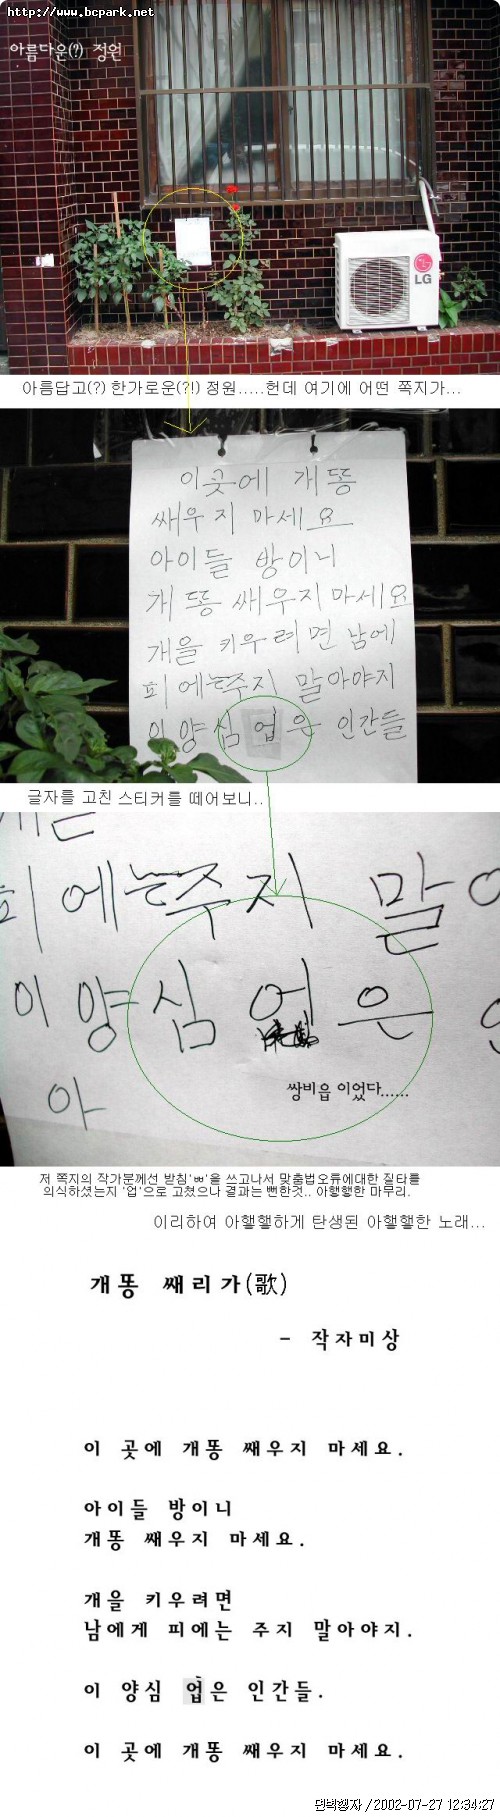 http://www.bcpark.net
아름다운(?) 정원
LG
아름답고(?) 한가로운(?!) 정원.....헌데 여기에 어떤 쪽지가...
이곳에 개똥
쌔우지 마세요
아이들 방이니
개 똥 쌔우지 마세요
개을 키우려면 남에
피에는주지 말아야지
이 양심 업은 인간들
글자를 고친 스티커를 떼어보니..
피에는주지 말아
이 양심 은 인
아
쌍비읍 이었다......
저 쪽지의 작가분께선 받침'ㅃ'을 쓰고나서 맞춤법오류에대한 질타를
의식하셨는지 '업'으로 고쳤으나 결과는 뻔한것.. 아햏햏한 마무리.
이리하여 아햏햏하게 탄생된 아햏햏한 노래...
개똥 째리가(歌)
- 작자미상
이 곳에 개똥 째우지 마세요.
아이들 방이니
개똥 째우지 마세요.
개을 키우려면
남에게 피에는 주지 말아야지.
이 양심 업은 인간들.
이 곳에 개똥 째우지 마세요.
면벽행자 /2002-07-27 12:34:27